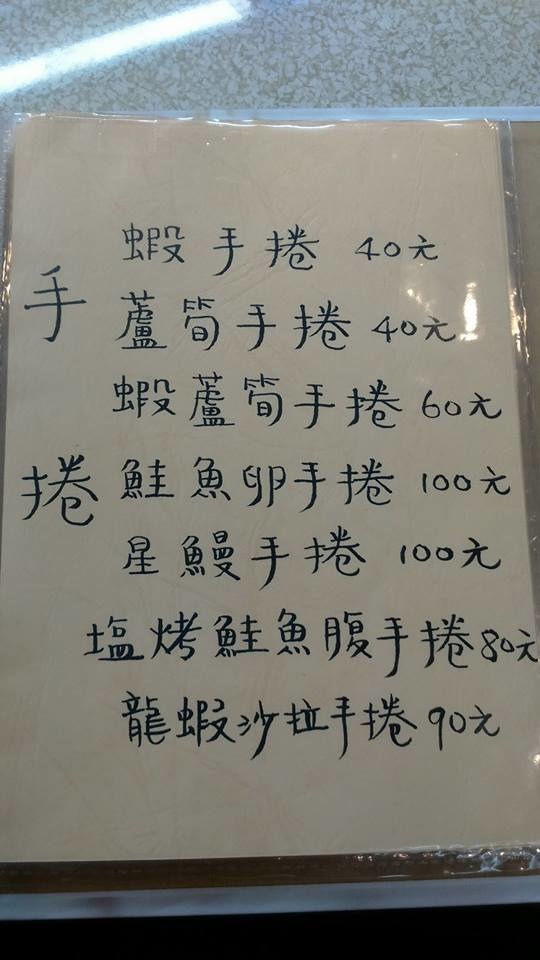 手捲
蝦手捲 40元
蘆筍手捲 40元
蝦蘆筍手捲 60元
鮭魚卵手捲 100元
星鰻手捲 100元
塩烤鮭魚腹手捲 80元
龍蝦沙拉手捲 90元